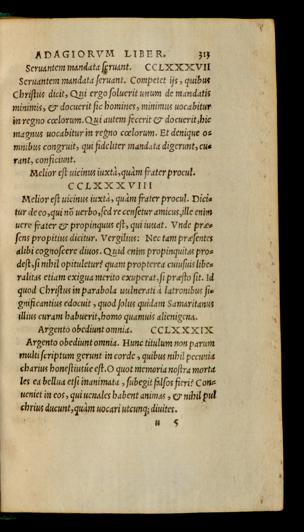 ADAGIORVM LIBER. 313
Seruantem mandata seruant. CCLXXXVII
Seruantem mandata seruant. Competet ijs, quibus
Christus dicit, Qui ergo soluerit unum de mandatis
minimis, & docuerit sic homines, minimus uocabitur
in regno cœlorum. Qui autem fecerit & docuerit, hic
magnus uocabitur in regno cœlorum. Et denique o=
mnibus congruit, qui fideliter mandata digerunt, cu=
rant, conficiunt.
Melior est uicinus iuxtà, quàm frater procul.
CCLXXXVIII
Melior est uicinus iuxtà, quàm frater procul. Dici=
tur de eo, qui nõ uerbo, sed re censetur amicus, ille enim
uere frater & propinquus est, qui iuuat. Vnde præ=
sens propitius dicitur. Vergilius: Nec tam præsentes
alibi cognoscere diuos. Quid enim propinquitas pro=
dest, si nihil opituletur? quam propterea cuiusuis libe=
ralitas etiam exigua merito exuperat, si præsto sit. Id
quod Christus in parabola uulnerati à latronibus si=
gnificantius edocuit, quod solus quidam Samaritanus
illius curam habuerit, homo quamuis alienigena.
Argento obediunt omnia. CCLXXXIX
Argento obediunt omnia. Hunc titulum non parum
multi scriptum gerunt in corde, quibus nihil pecunia
charius honestiusùe est. O quot memoria nostra morta
les ea bellua etsi inanimata, subegit falsos fieri? Con=
ueniet in eos, qui uenales habent animas, & nihil pul
chrius ducunt, quàm uocari utcunq; diuites.
u 5